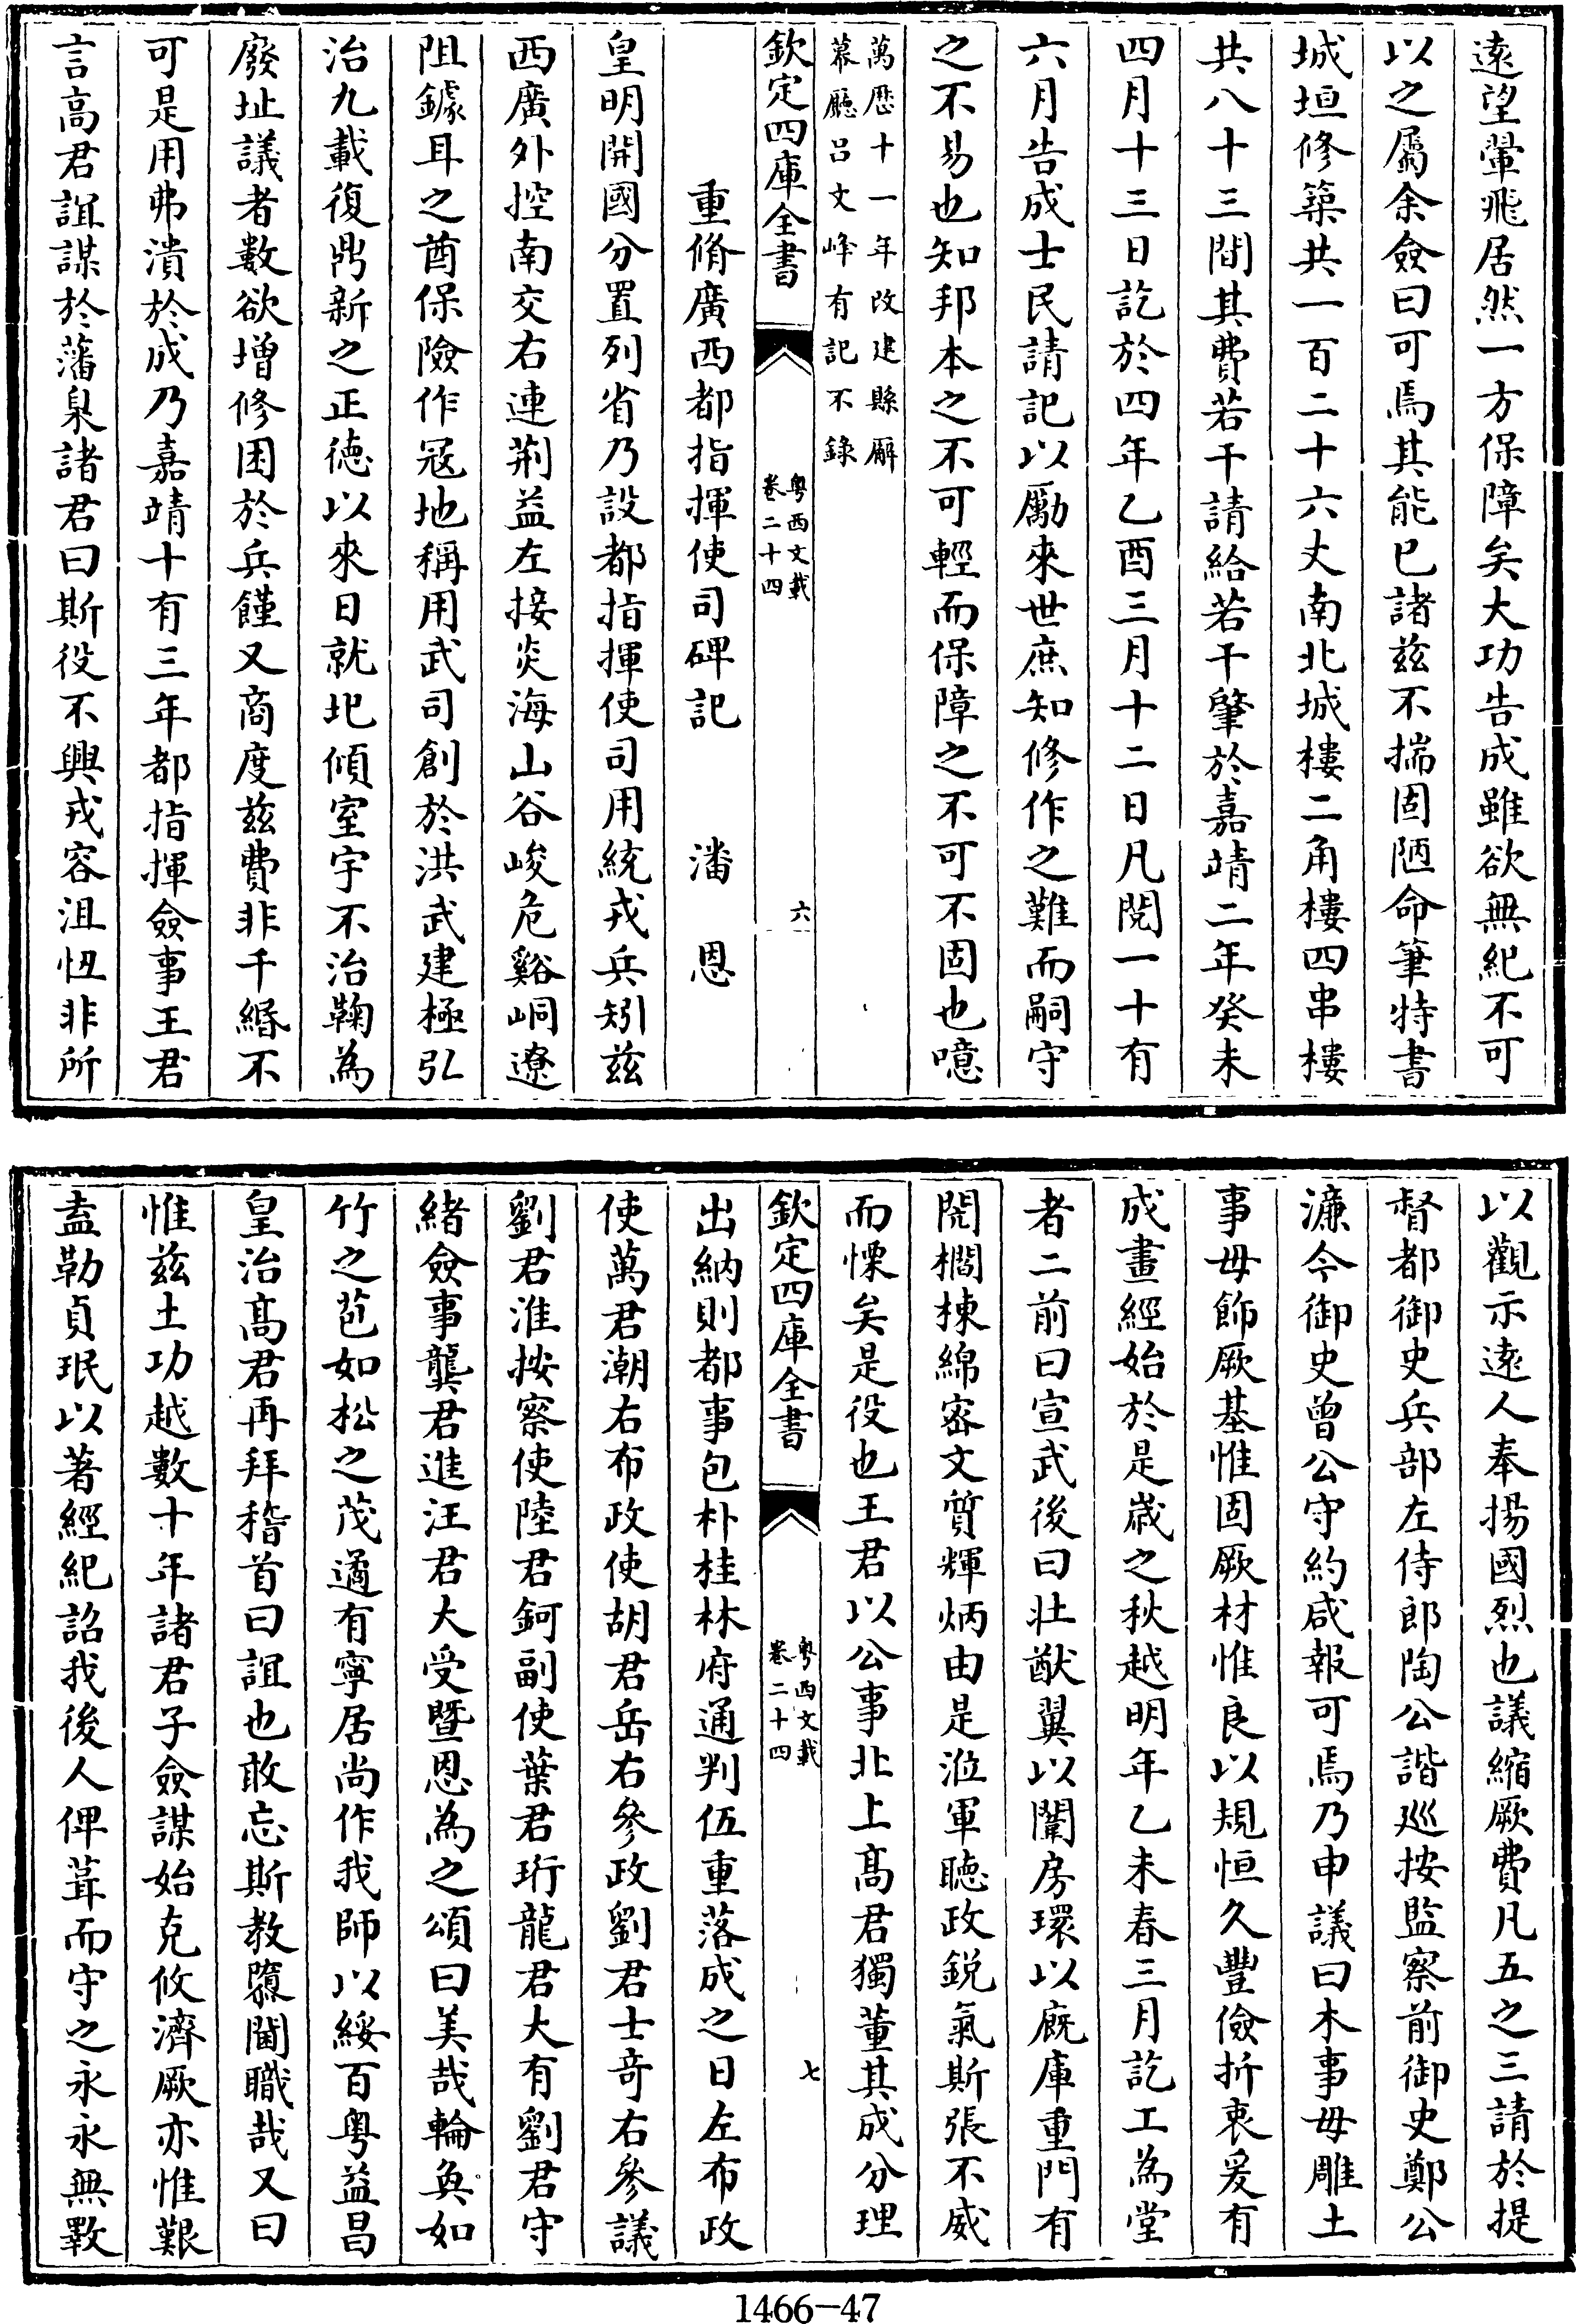 遠望翬飛居然一方保障矣大功告成雖欲無紀不可
以之屬余僉曰可焉其能已諸兹不揣固陋命筆特書
城垣修築共一百二十六丈南北城樓二角樓四串樓
共八十三間其費若干請給若干肇於嘉靖二年癸未
四月十三日訖於四年乙酉三月十二日凡閱一十有
六月告成士民請記以勵來世庶知修作之難而嗣守
之不易也知邦本之不可輕而保障之不可不固也噫
萬厯十一年改建縣廨
幕廳吕文峰有記不錄
欽定四庫全書
粤西文載
卷二十四
六
重脩廣西都指揮使司碑記 潘恩
皇明開國分置列省乃設都指揮使司用統戎兵矧兹
西廣外控南交右連荆益左接炎海山谷峻危谿峒遼
阻鐻耳之酋保險作寇地稱用武司創於洪武建極弘
治九載復鼎新之正德以來日就圯傾室宇不治鞠為
廢址議者數欲增修困於兵饉又商度兹費非千緡不
可是用弗潰於成乃嘉靖十有三年都指揮僉事王君
言高君誼謀於藩臬諸君曰斯役不興戎容沮忸非所
以觀示遠人奉揚國烈也議縮厥費凡五之三請於提
督都御史兵部左侍郎陶公諧廵按監察前御史鄭公
濂今御史曾公守約咸報可焉乃申議曰木事毋雕土
事毋飾厥基惟固厥材惟良以規恒久豐儉折衷爰有
成畫經始於是歲之秋越明年乙未春三月訖工為堂
者二前曰宣武後曰壯猷翼以闈房環以廐庫重門有
閌櫊棟綿密文質輝炳由是涖軍聽政鋭氣斯張不威
而慄矣是役也王君以公事北上高君獨董其成分理
欽定四庫全書
粤西文載
卷二十四
七
出納則都事包朴桂林府通判伍重落成之日左布政
使萬君潮右布政使胡君岳右參政劉君士竒右參議
劉君淮按察使陸君鈳副使葉君珩龍君大有劉君守
緒僉事龔君進汪君大受暨恩為之頌曰美哉輪奐如
竹之苞如松之茂遹有寧居尚作我師以綏百粤益昌
皇治高君再拜稽首曰誼也敢忘斯教隳閫職哉又曰
惟兹土功越數十年諸君子僉謀始克攸濟厥亦惟艱
盍勒貞珉以著經紀詔我後人俾葺而守之永永無斁
1466-47